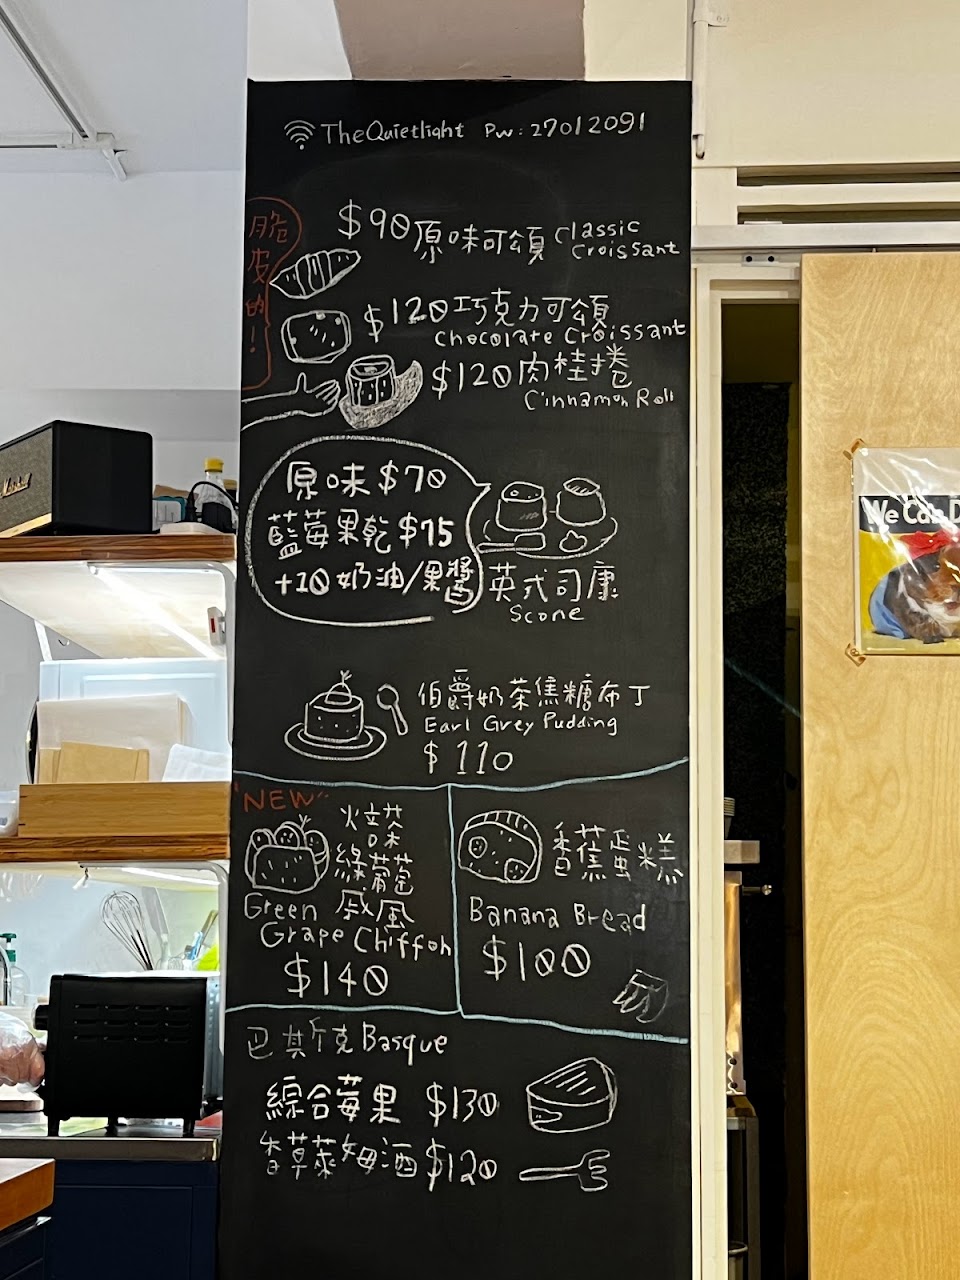 TheQuietlight PW: 27012091
脆皮的！
$90 原味可頌 Classic Croissant
$120 巧克力可頌
Chocolate Croissant
$120 肉桂捲
Cinnamon Roll
原味 $70
藍莓果乾 $75
+10 奶油/果醬
英式司康
Scone
伯爵奶茶焦糖布丁
Earl Grey Pudding
$110
"NEW"
綠葡萄
戚風
Green
Grape Chiffon
$140
香蕉蛋糕
Banana Bread
$100
巴斯克 Basque
綜合莓果 $130
香草萊姆酒 $120
Marshall
We Can D